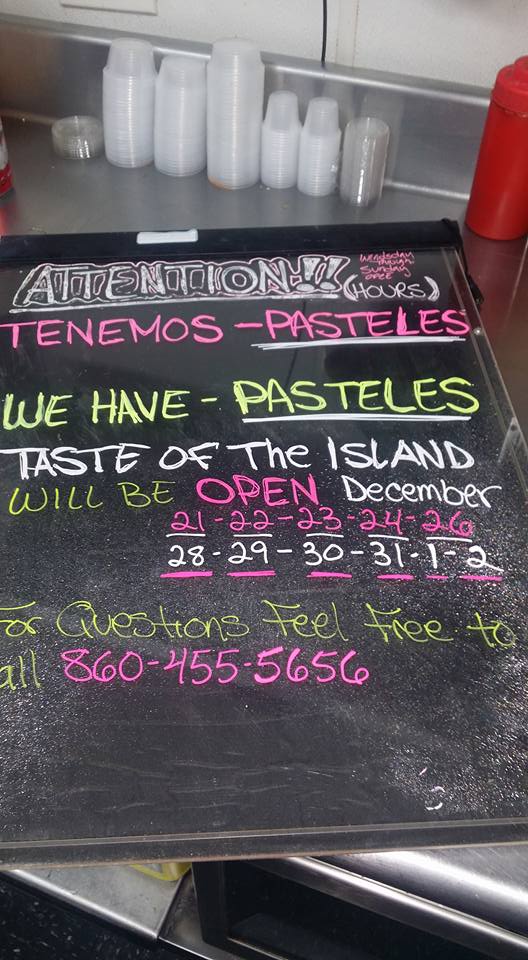 ATTENTION!!
Wendsday
Through
Sunday
(HOURS)
TENEMOS - PASTELES
WE HAVE - PASTELES
TASTE OF The ISLAND
WILL BE OPEN December
21 - 22 - 23 - 24 - 26
28 - 29 - 30 - 31 - 1 - 2
For Questions Feel Free to
all 860-455-5656